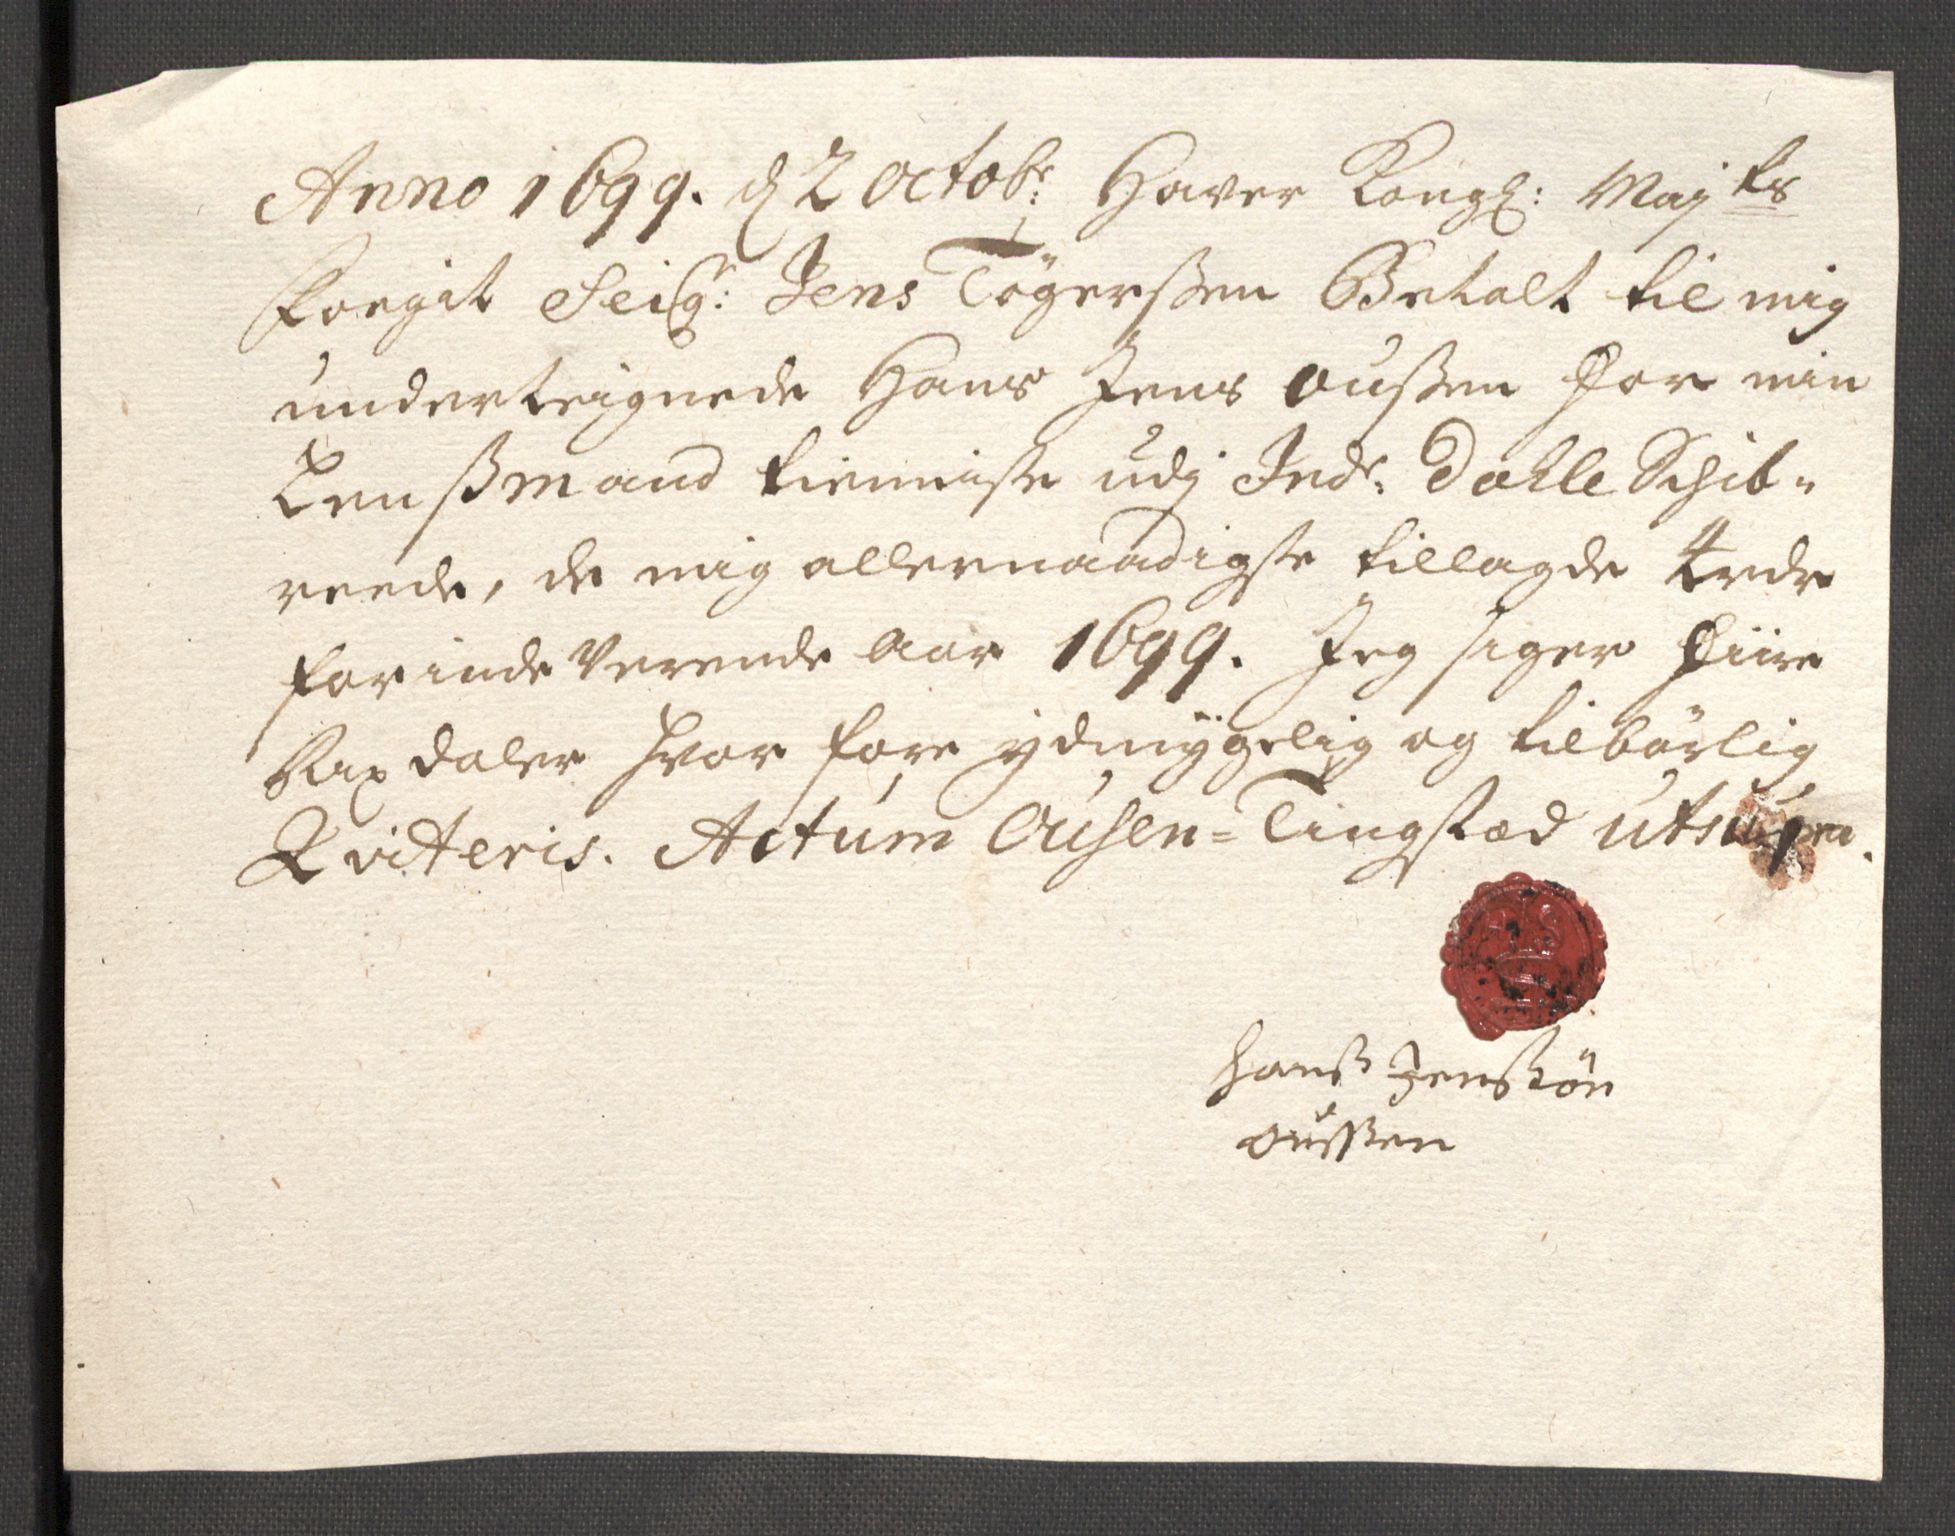 Anno 1699. d 2 octobr: Haver Kongl: Maj ts
Fougit Seigr: Jens Tögerßen Betalt til mig
underteignede Hans Jens oußen for min
Lenßmand tienniste udj Indr. Dahle Schib-
reede, de mig allernaadigste tillagde 4 rdr
for indeverende Aar 1699. Jeg siger fiire
Rix daler hvor fore ydmÿgelig og tilbörlig
Qviteris. Actum Ousen=Tingstæd utsupra.
Hanß Jenßøn
oußen